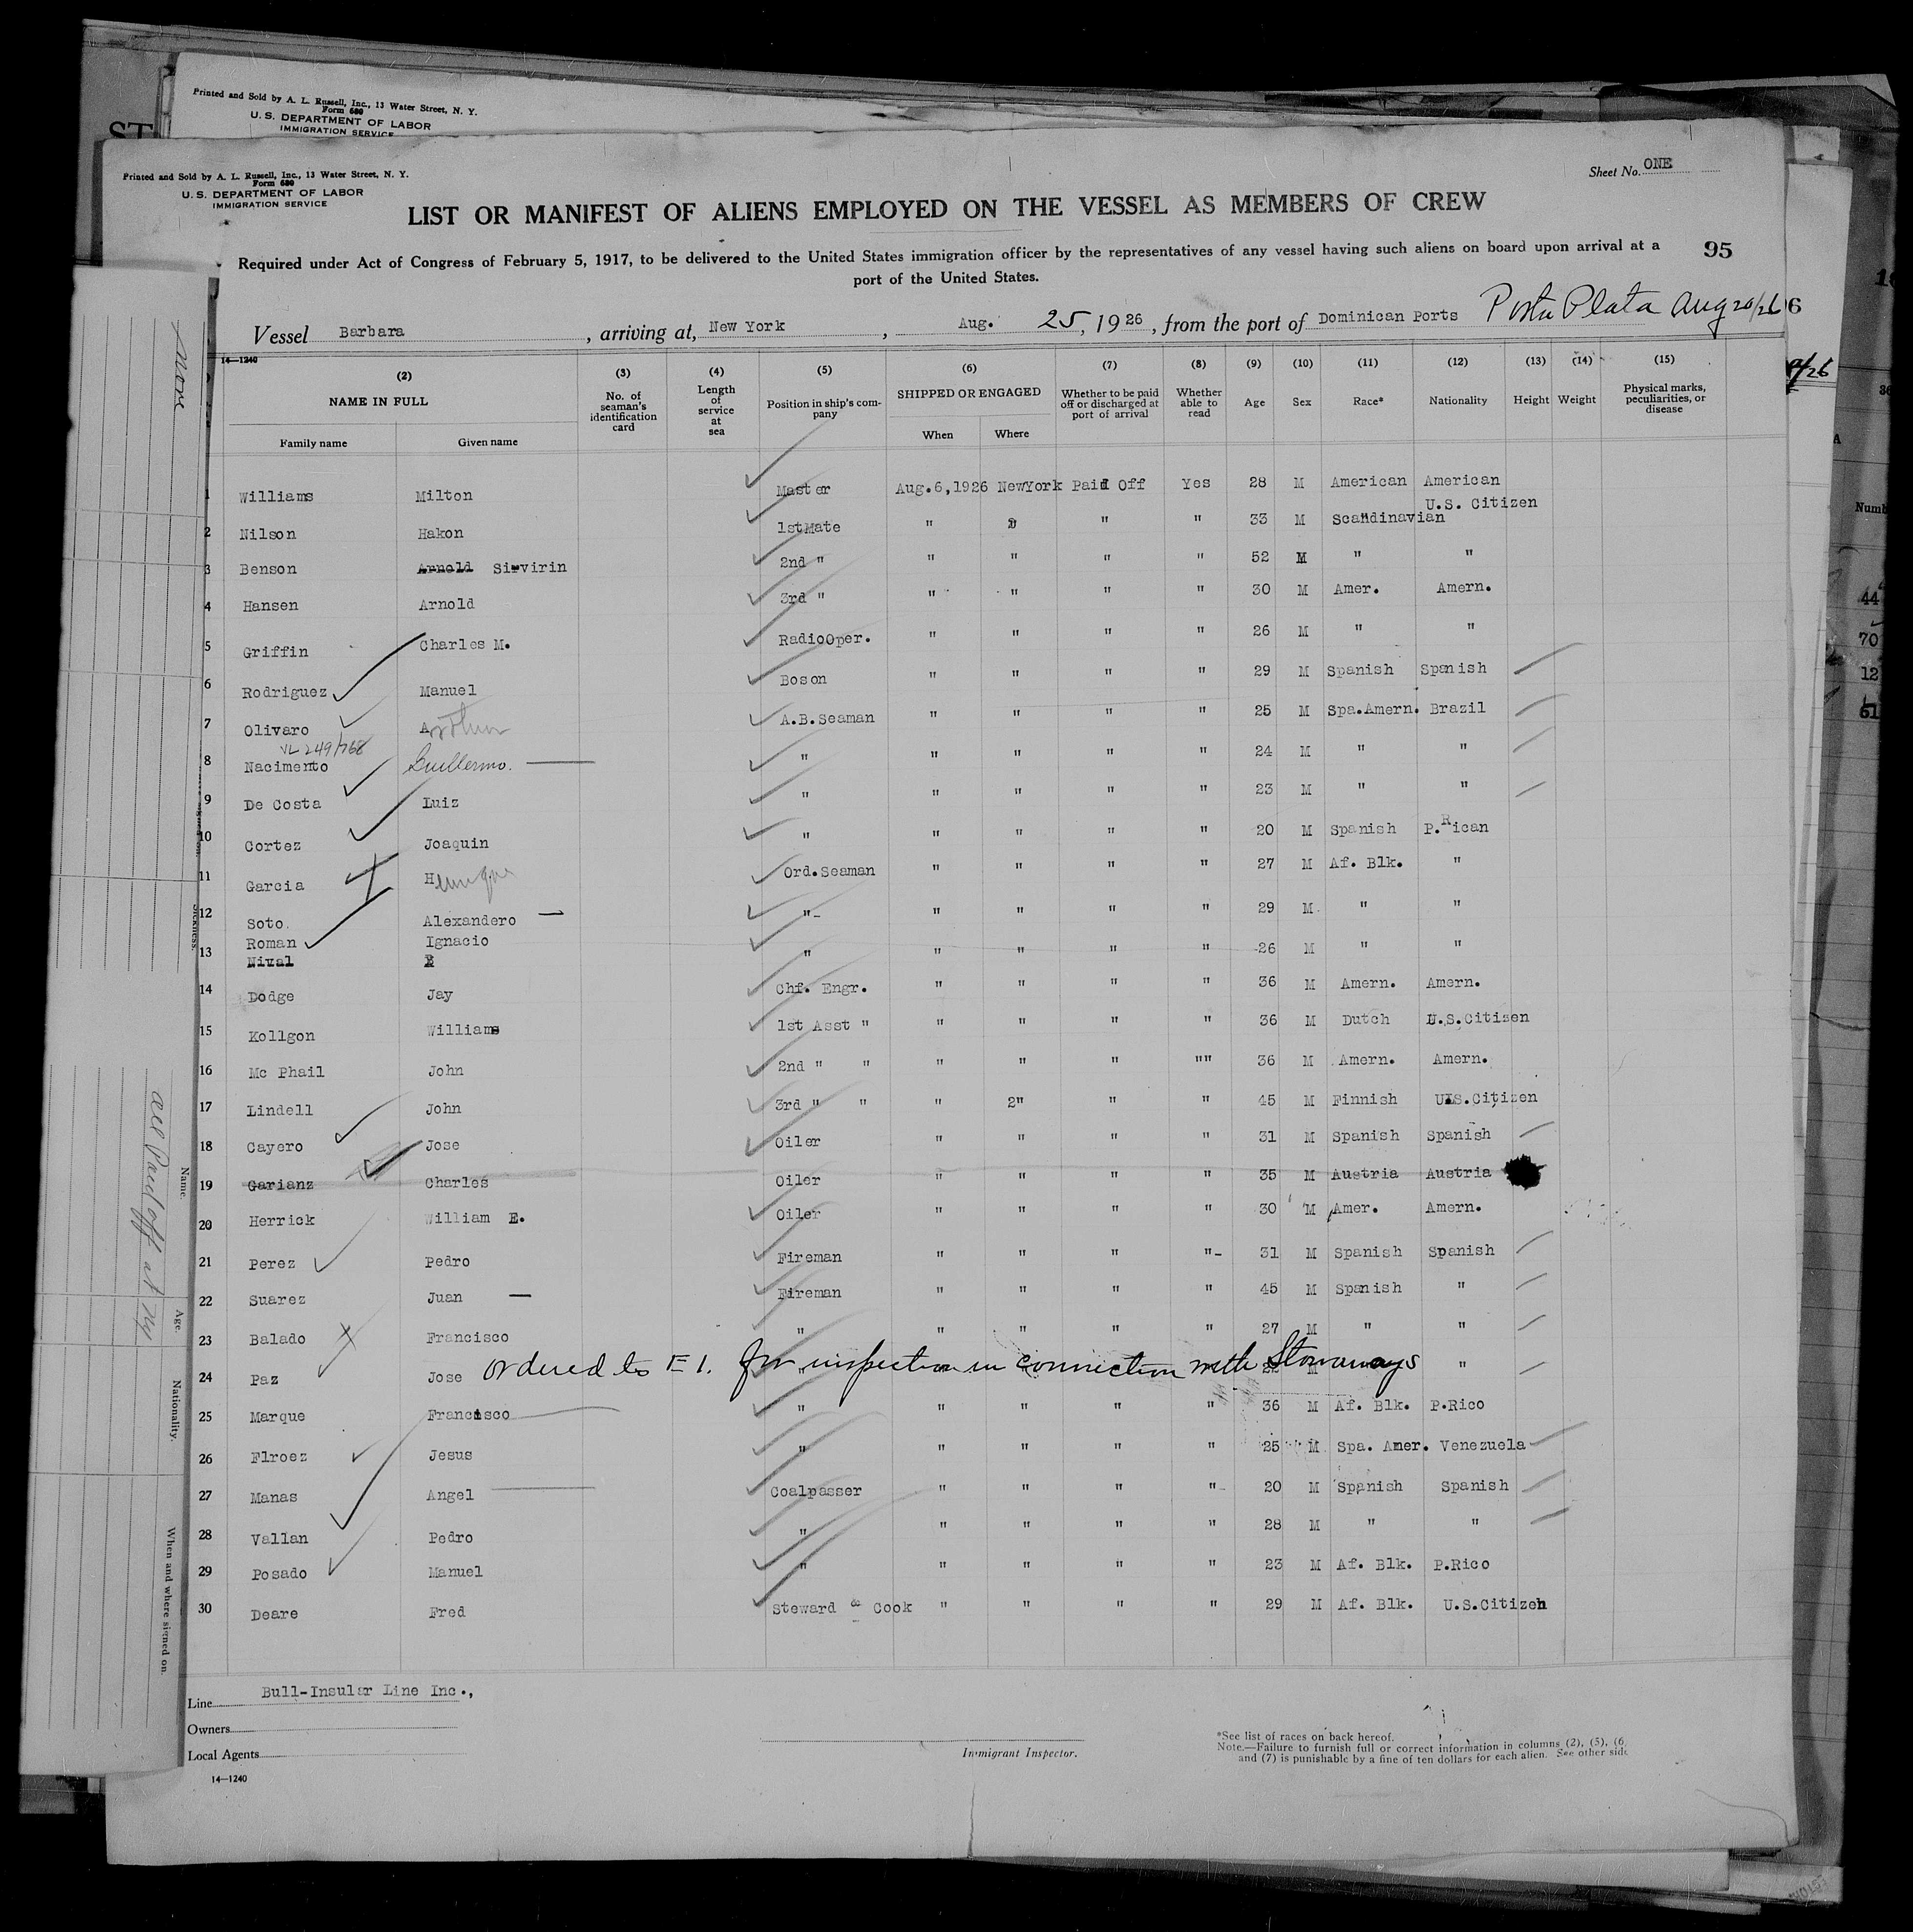 Printed and Sold by A. L. Russell, Inc., 13 Water Street, N. Y.
Form 680
U. S. DEPARTMENT OF LABOR
IMMIGRATION SERVICE
Printed and Sold by A. L. Russell, Inc., 13 Water Street, N. Y.
Form 680
U. S. DEPARTMENT OF LABOR
IMMIGRATION SERVICE
Sheet No. ONE
LIST OR MANIFEST OF ALIENS EMPLOYED ON THE VESSEL AS MEMBERS OF CREW
95
Required under Act of Congress of February 5, 1917, to be delivered to the United States immigration officer by the representatives of any vessel having such aliens on board upon arrival at a
port of the United States.
Vessel Barbara , arriving at, New York , Aug. 25, 1926, from the port of Dominican Ports Porta Plata Aug 20/26
14—1240
(2) (3) (4) (5) (6) (7) (8) (9) (10) (11) (12) (13) (14) (15)
NAME IN FULL No. of seaman's identification card Length of service at sea Position in ship's company SHIPPED OR ENGAGED Whether to be paid off or discharged at port of arrival Whether able to read Age Sex Race* Nationality Height Weight Physical marks, peculiarities, or disease
Family name Given name When Where
1 Williams Milton Master Aug.6,1926 NewYork Paid Off Yes 28 M American American
U.S. Citizen
2 Nilson Hakon 1stMate " " " " 33 M Scandinavian
3 Benson Arnold Sirvirin 2nd " " " " " 52 M " "
4 Hansen Arnold 3rd " " " " " 30 M Amer. Amern.
5 Griffin Charles M. RadioOper. " " " " 26 M " "
6 Rodriguez Manuel Boson " " " " 29 M Spanish Spanish
7 Olivaro Arthur A.B.Seaman " " " " 25 M Spa.Amern. Brazil
VL 249/768
8 Nacimento Guillermo. " " " " " 24 M " "
9 De Costa Luiz " " " " " 23 M " "
10 Cortez Joaquin " " " " " 20 M Spanish P.Rican
11 Garcia H Ord.Seaman " " " " 27 M Af. Blk. "
12 Soto. Alexandero "- " " " " 29 M. " "
Roman Ignacio
13 Nival R " " " " " 26 M " "
14 Dodge Jay Chf. Engr. " " " " 36 M Amern. Amern.
15 Kollgon Williams 1st Asst " " " " " 36 M Dutch U.S.Citizen
16 Mc Phail John 2nd " " " " " "" 36 M Amern. Amern.
17 Lindell John 3rd " " " 2" " " 45 M Finnish U.S.Citizen
18 Cayero Jose Oiler " " " " 31 M Spanish Spanish
19 Garianz Charles Oiler " " " " 35 M Austria Austria
20 Herrick William E. Oiler " " " " 30 M Amer. Amern.
21 Perez Pedro Fireman " " " "- 31 M Spanish Spanish
22 Suarez Juan Fireman " " " " 45 M Spanish "
23 Balado Francisco " " " " " 27 M " "
24 Paz Jose ordered to E I. for inspection in connection with Stowaways "
25 Marque Francisco " " " " " 36 M Af. Blk. P.Rico
26 Flroez Jesus " " " " " 25 M Spa. Amer. Venezuela
27 Manas Angel Coalpasser " " " "- 20 M Spanish Spanish
28 Vallan Pedro " " " " " 28 M " "
29 Posado Manuel " " " " " 23 M Af. Blk. P.Rico
30 Deare Fred Steward & Cook " " " " 29 M Af. Blk. U.S.Citizen
Line Bull-Insular Line Inc.,
Owners
Local Agents
14—1240
Immigrant Inspector.
*See list of races on back hereof.
Note.—Failure to furnish full or correct information in columns (2), (5), (6
and (7) is punishable by a fine of ten dollars for each alien. See other side
None
Sickness.
all Paid off at NY
Name.
Age.
Nationality.
When and where signed on.